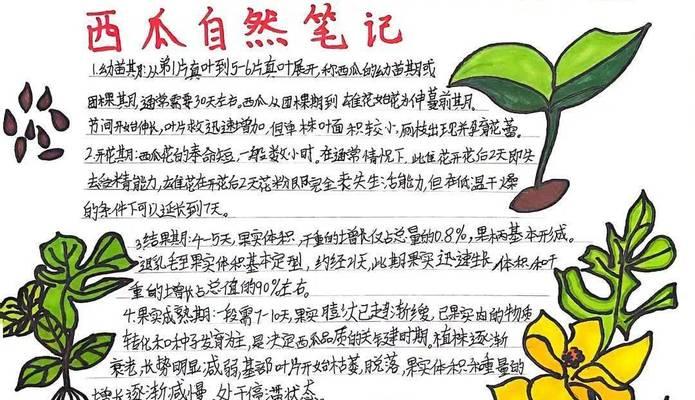 西瓜自然笔记
1.幼苗期:从第1片真叶到5-6片真叶展开,称西瓜的幼苗期或
团棵期,通常需要30天左右。西瓜从团棵期到雄花始花为伸蔓前期。
节间开始伸长,叶片数迅速增加,但单株叶面积较小,
2.开花期:西瓜花的寿命短,一般数小时。在通常情况下,此雌花开花后2天即失
去受精能力,去雄花在开花后2天花粉即完全丧失生活能力,但在低温干燥
的条件下可以延长到7天。
3.结果期:4-5天,果实体积,干重的增长仅占总量的0.8%,果柄基本形成。
退乳毛至果实体积基本定型,约经21天,此期果实迅速生长,体积和干
重的增长占总值的90%左右。
4.果实成熟期:一段需7-10天,果实膨大已趋渐缓,已果实内的物质
转化和种子发育为主,是决定西瓜品质的关键建时期。植株逐渐
衰老,长势明显减弱,基部叶片开始枯萎,脱落,果实体积重量的
增长逐渐减慢,处于停滞状态。